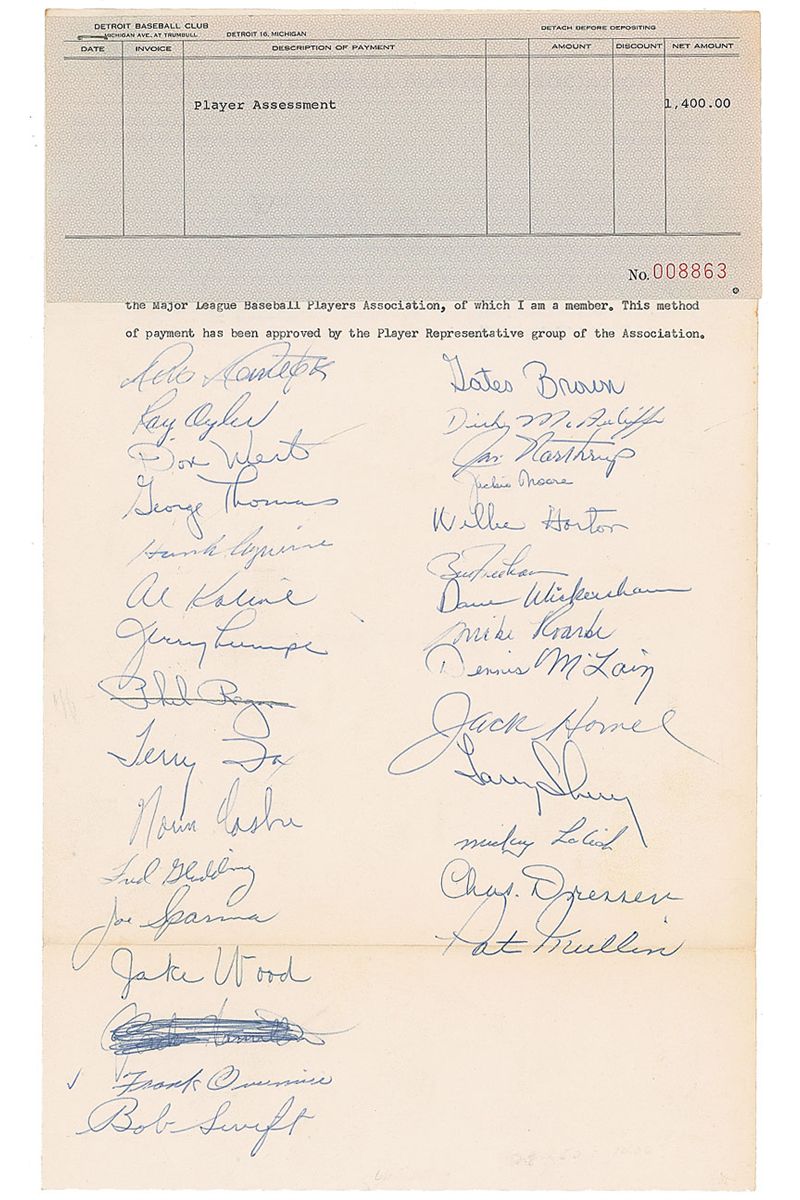 DETROIT BASEBALL CLUB
MICHIGAN AVE. AT TRUMBULL DETROIT 16, MICHIGAN
DETACH BEFORE DEPOSITING
DATE INVOICE DESCRIPTION OF PAYMENT AMOUNT DISCOUNT NET AMOUNT
Player Assessment 1,400.00
No. 008863
the Major League Baseball Players Association, of which I am a member. This method
of payment has been approved by the Player Representative group of the Association.
Ray Oyler
Don Wert
George Thomas
Hank Aguirre
Al Kaline
Jerry Lumpe
Phil Regan
Terry Fox
Norm Cash
Fred Gladding
Joe Sparma
Jake Wood
Frank Overmire
Bob Swift
Gates Brown
Dick McAuliffe
Jim Northrup
Jackie Moore
Willie Horton
Bill Freehan
Dave Wickersham
Mike Roarke
Dennis McLain
Jack Homel
Larry Sherry
Mickey Lolich
Chas. Dressen
Pat Mullin